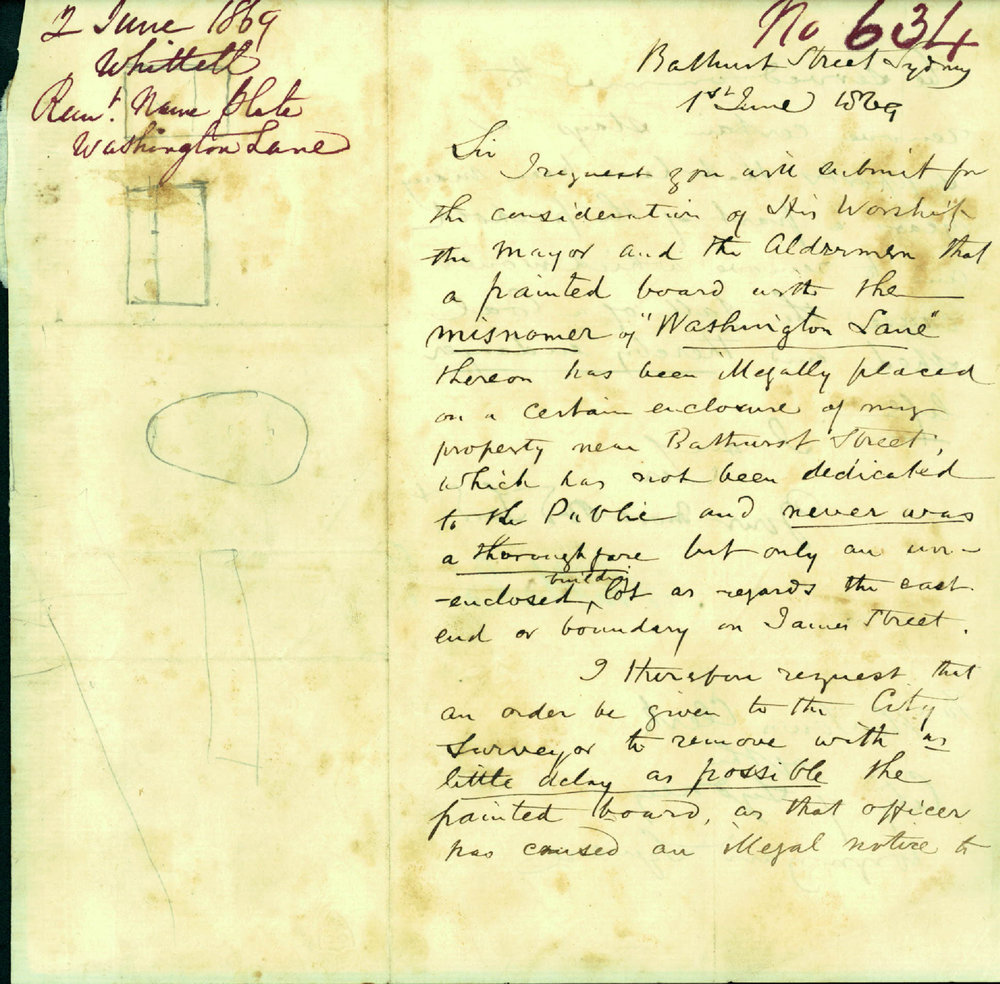 2 June 1869
Whittell
Reml. Name Plate
Washington Lane
No 634
Bathurst Street Sydney
1st June 1869
Sir
I request you will submit for
the consideration of His Worship
the Mayor and the Aldermen that
a painted board with the
misnomer of "Washington Lane"
thereon has been illegally placed
on a certain enclosure of my
property near Bathurst Street,
which has not been dedicated
to the Public and never was
a thoroughfare but only an un-
-enclosed building lot as regards the east
end or boundary on James Street.
I therefore request that
an order be given to the City
Surveyor to remove with as
little delay as possible the
painted board, as that officer
has caused an illegal notice to